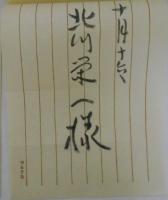 十月十六
北川栄一様